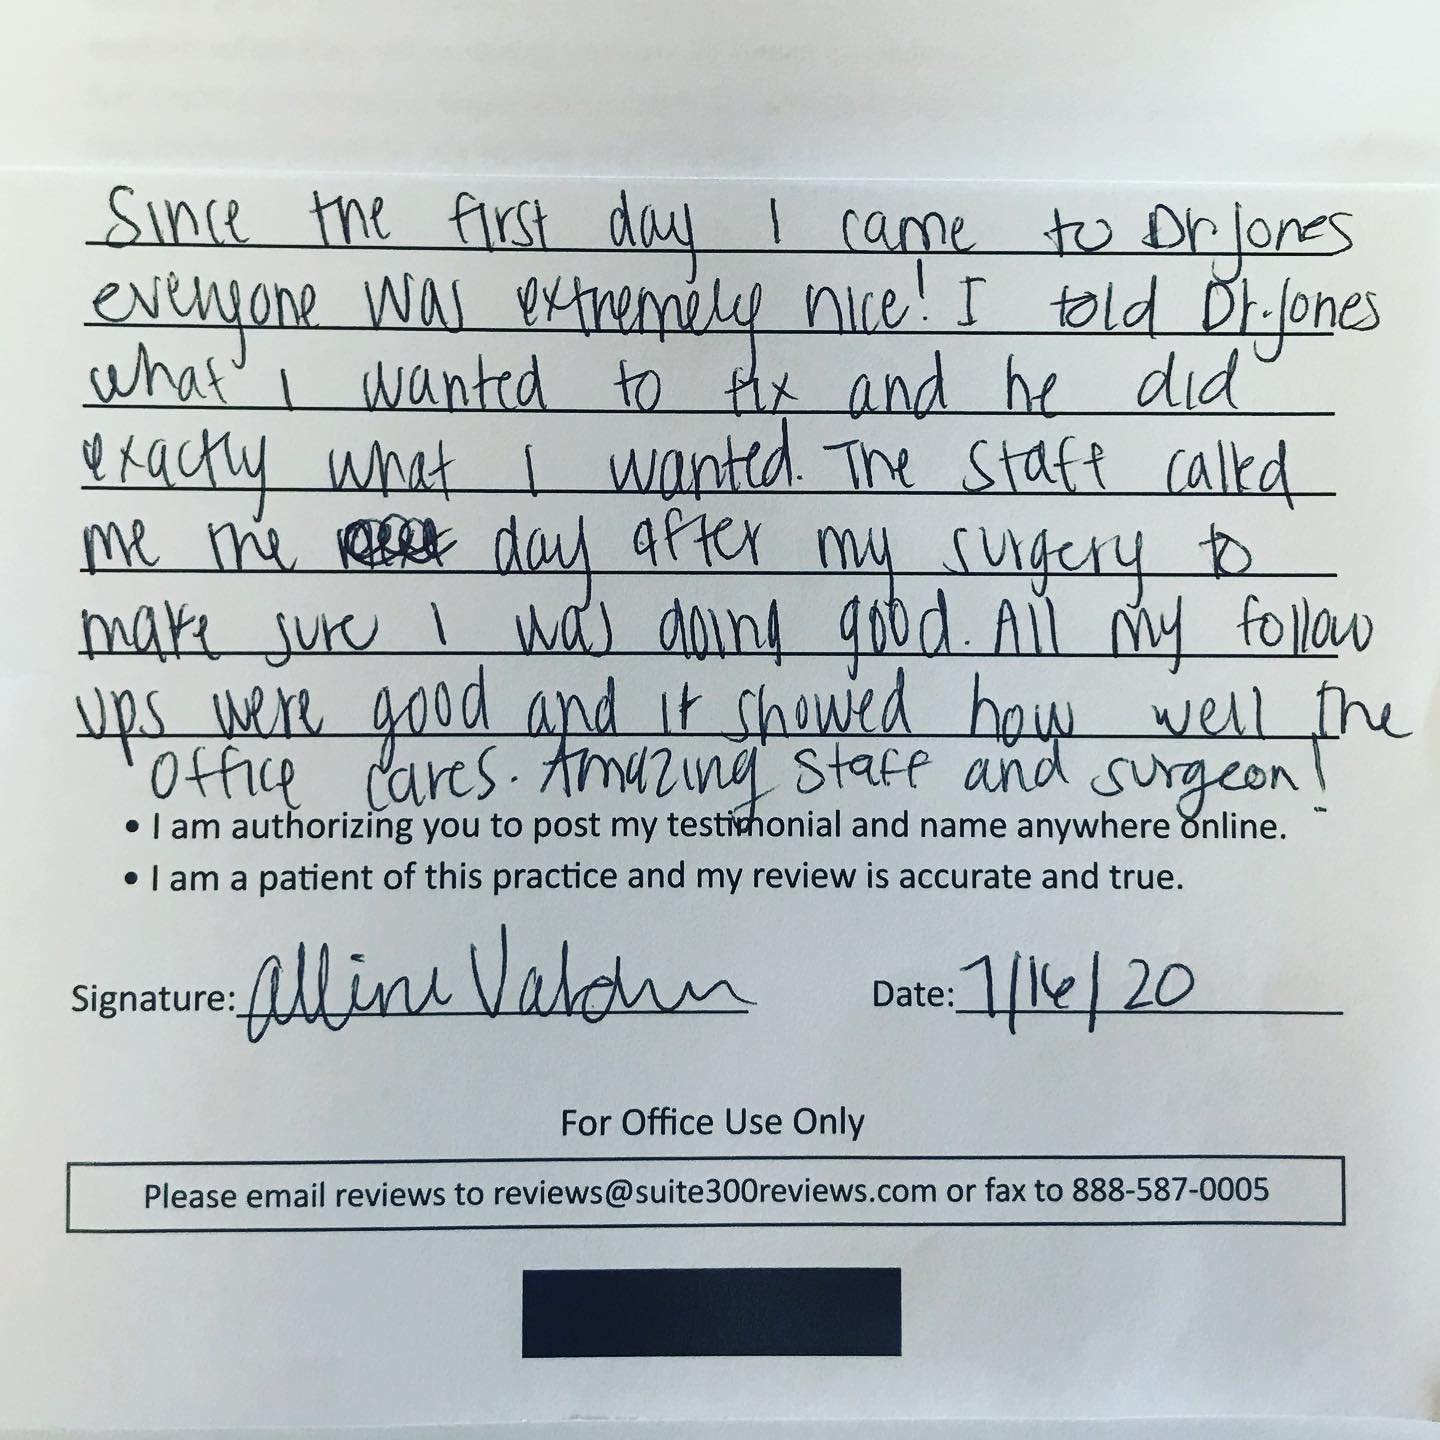 Since the first day I came to Dr Jones
everyone was extremely nice! I told Dr. Jones
what I wanted to fix and he did
exactly what I wanted. The staff called
me the day after my surgery to
make sure I was doing good. All my follow
ups were good and it showed how well the
office cares. Amazing staff and surgeon!
• I am authorizing you to post my testimonial and name anywhere online.
• I am a patient of this practice and my review is accurate and true.
Signature: Date: 7/16/20
For Office Use Only
Please email reviews to reviews@suite300reviews.com or fax to 888-587-0005